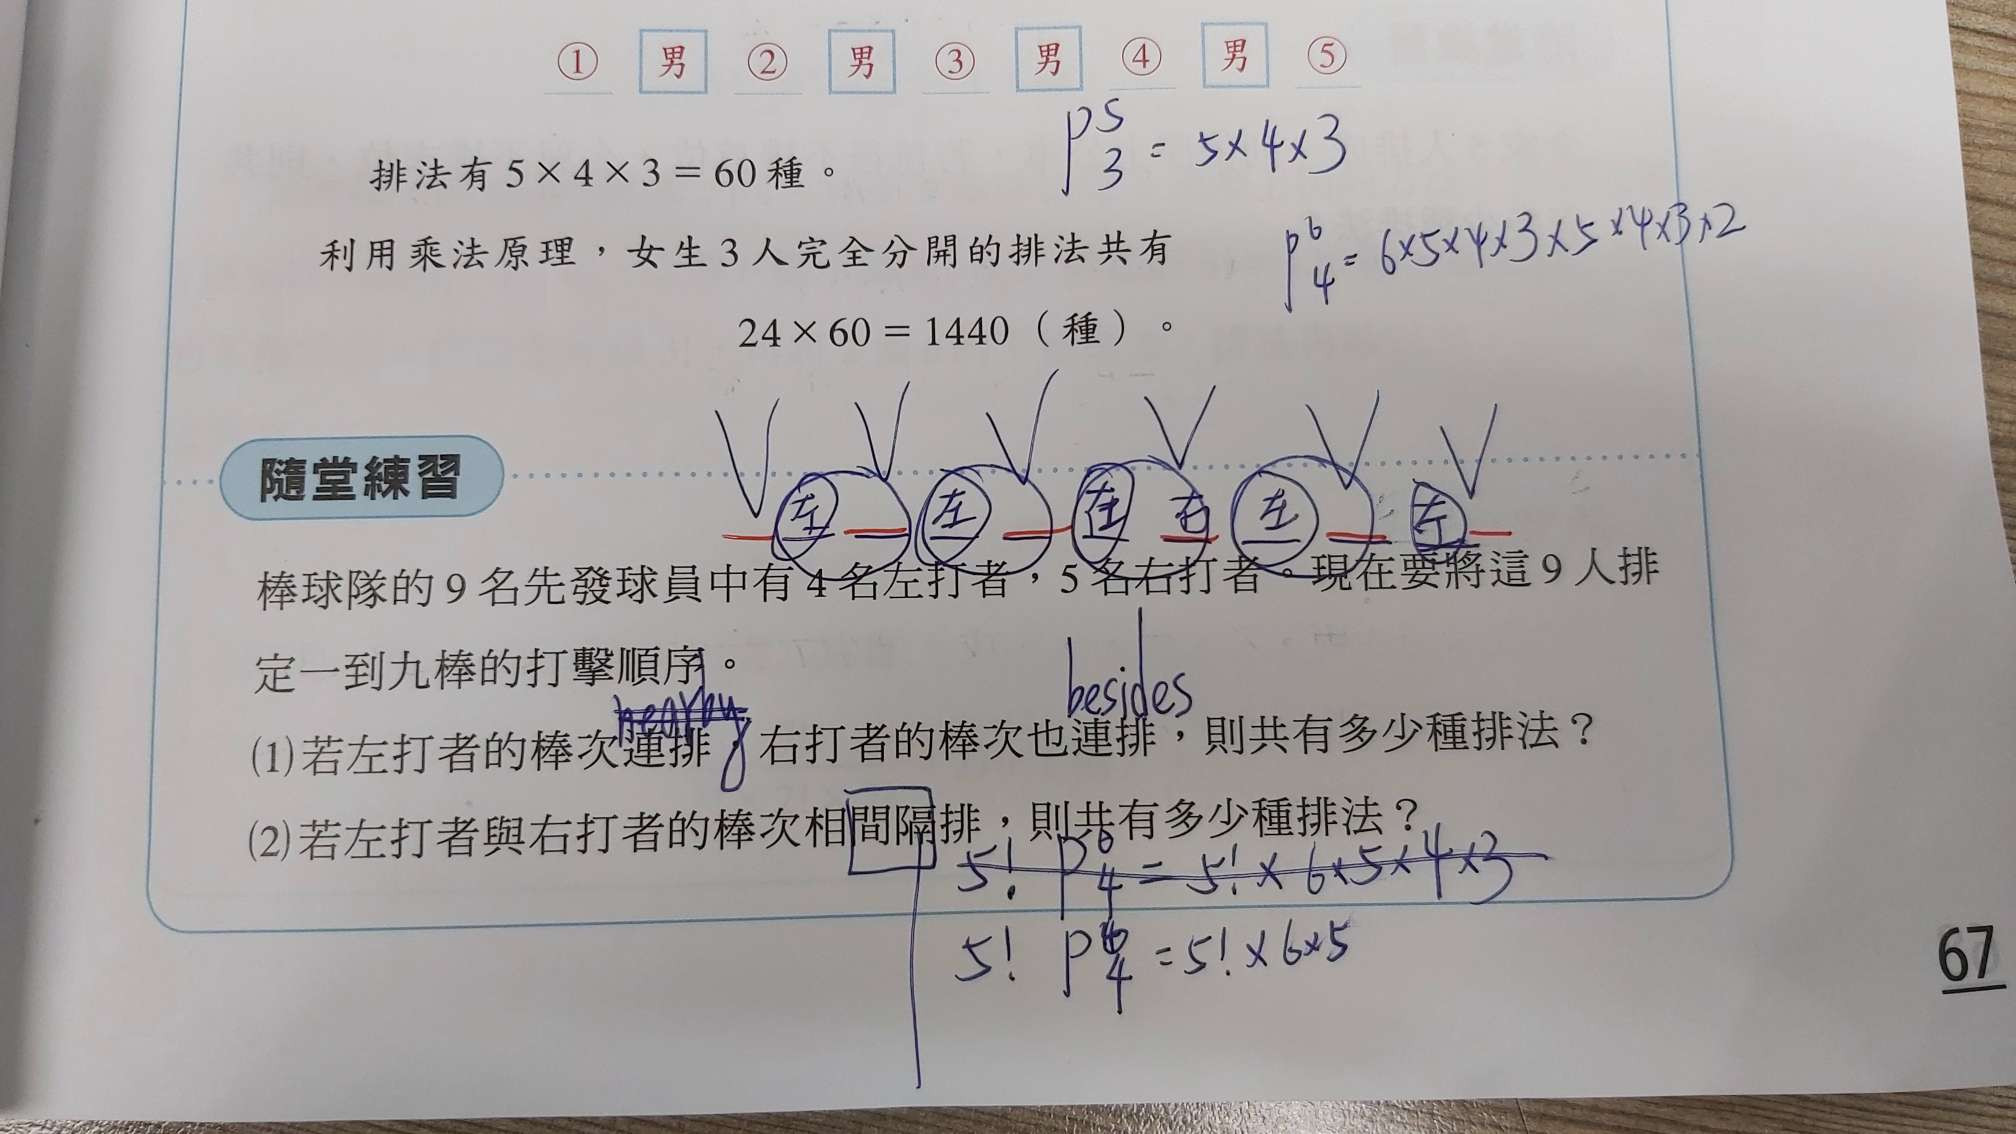 ① 男 ② 男 ③ 男 ④ 男 ⑤
P⁵₃ = 5×4×3
排法有 5 × 4 × 3 = 60 種。
P⁶₄ = 6×5×4×3×5×4×3×2
利用乘法原理，女生 3 人完全分開的排法共有
24 × 60 = 1440（種）。
隨堂練習
左 左 左 右 左 左
棒球隊的 9 名先發球員中有 4 名左打者，5 名右打者。現在要將這 9 人排
定一到九棒的打擊順序。
nearby besides
(1) 若左打者的棒次連排，右打者的棒次也連排，則共有多少種排法？
(2) 若左打者與右打者的棒次相間隔排，則共有多少種排法？
5! P⁶₄ = 5! × 6×5×4×3
5! P⁶₄ = 5! × 6×5
67